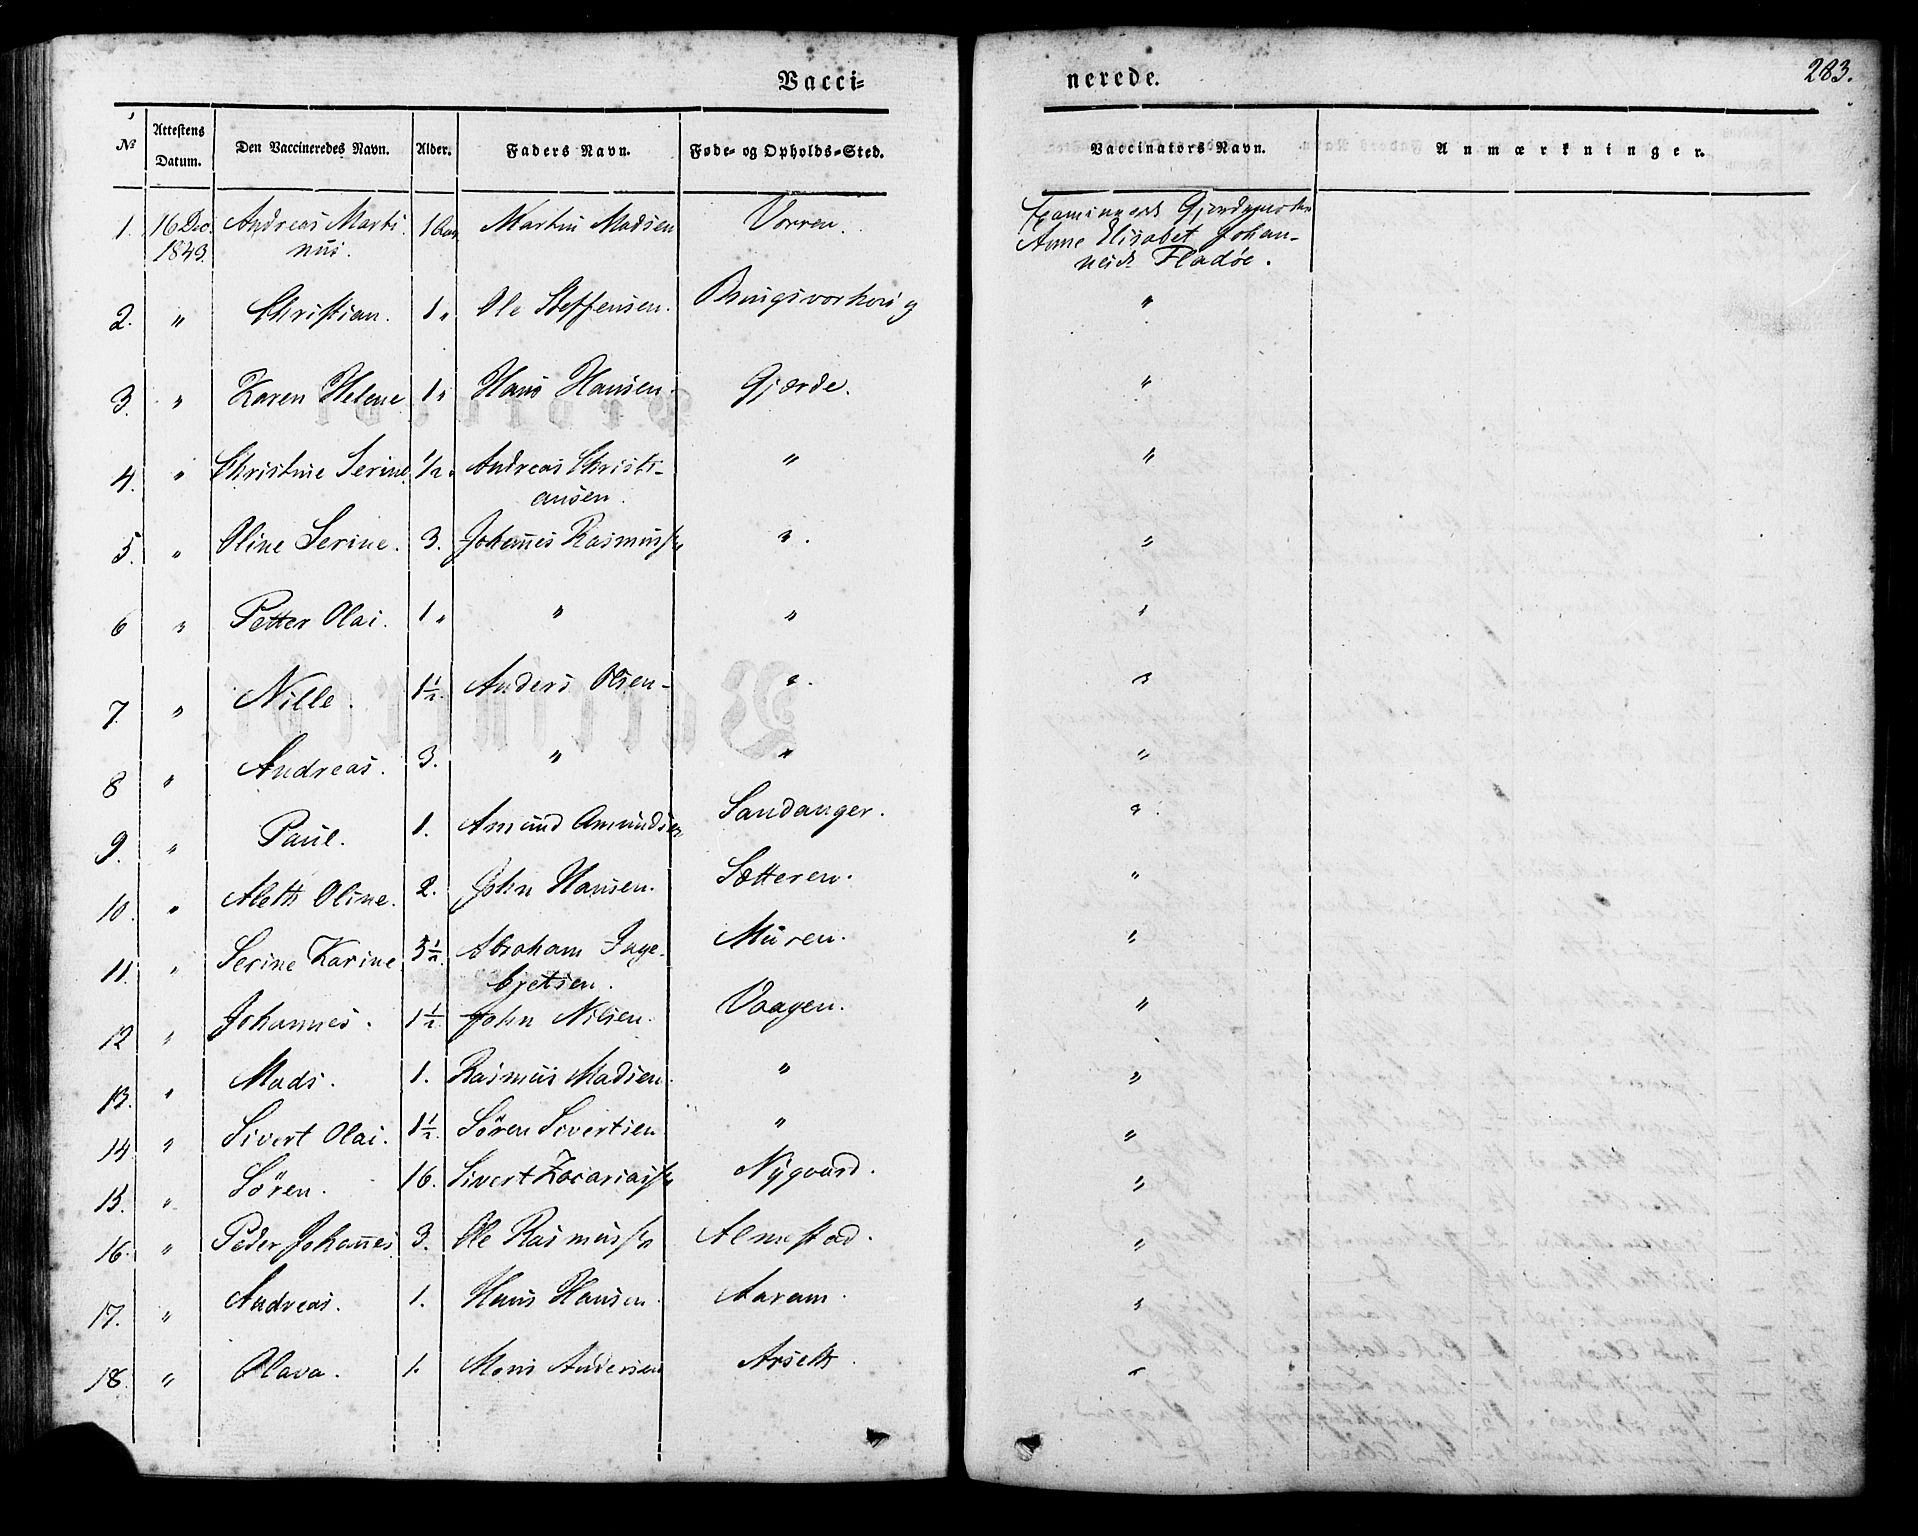 Vacci=
nerede.
283.
No
Attestens Datum.
Den Vaccineredes Navn.
Alder.
Faders Navn.
Føde- og Opholds-Sted.
Vaccinators Navn.
Anmærkninger.
1. 16 Dec. Andreas Marti Martin Madsen Vorren.
1843. nus.
Anne Elisabet Johan-
Fladøe.
2. " Christian. 1 " Ole Steffensen. "
3. " Karen Helene 1 " Hans Hansen. Gjærde. "
4. " Christine Serine 1/2 " Andreas Christi- " "
ansen.
5 " Oline Serine. 3. Johannes Rasmuss. " "
6 " Petter Olai. 1 " " " "
7. " Nille. 1 1/2. Anders Olsen " "
8 " Andreas. 3. " " "
9. " Paul. 1. Amund Amundsen Sandanger. "
10. " Aleth Oline. 2. John Hansen. Sætteren. "
11. " Serine Karine 3 1/2. Abraham Inge- Muren. "
bretsen.
12 " Johannes. 1 1/2. John Nilsen. Vaagen. "
13. " Mads. 1. Rasmus Madsen. " "
14 " Sivert Olai. 1 1/2. Sören Sivertsen " "
15. " Sören. 16. Sivert Zacariass. Nÿgaard. "
16. " Peder Johannes 3. Ole Rasmuss. Almestad. "
17. " Andreas. 1. Hans Hansen. Aaram. "
18. " Olava. 1. Mons Andersen Arseth. "